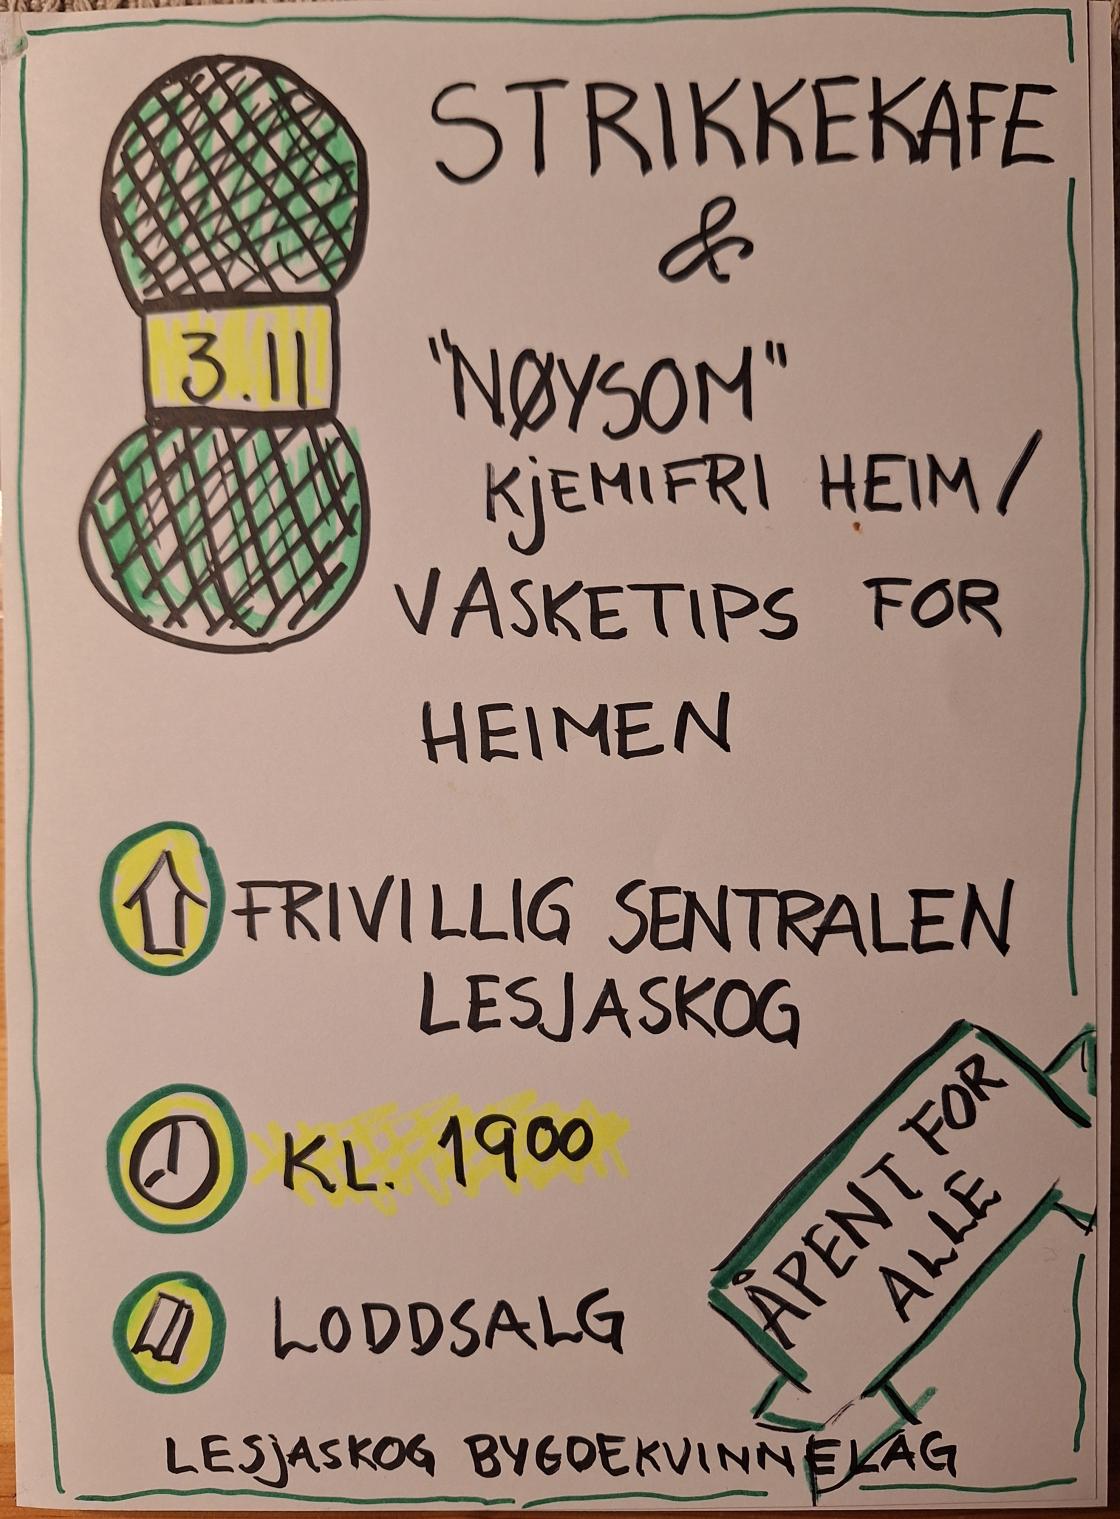 STRIKKEKAFE
&
3.11
"NØYSOM"
KjEMIFRI HEIM/
VASKETIPS FOR
HEIMEN
FRIVILLIG SENTRALEN
LESJASKOG
KL. 1900
ÅPENT FOR
ALLE
LODDSALG
LESjASKOG BYGDEKVINNELAG